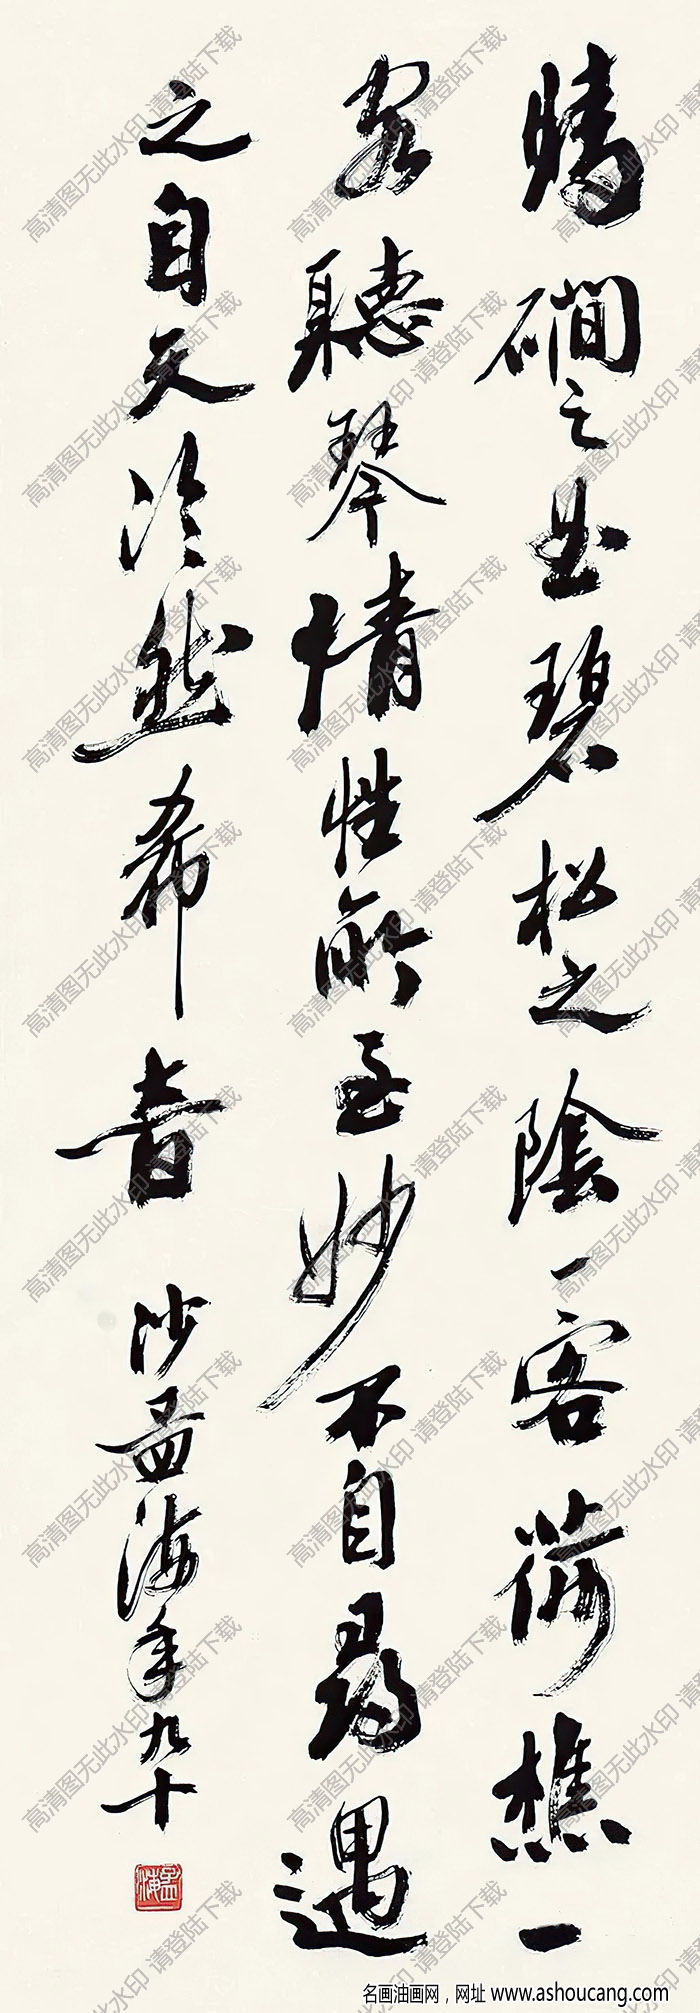 晴磵之曲碧松之陰一客荷樵一
客聽琴情性所至妙不自尋遇
之自天泠然希音 沙孟海年九十
孟海
高清图无此水印 请登陆下载
名画油画网，网址 www.ashoucang.com